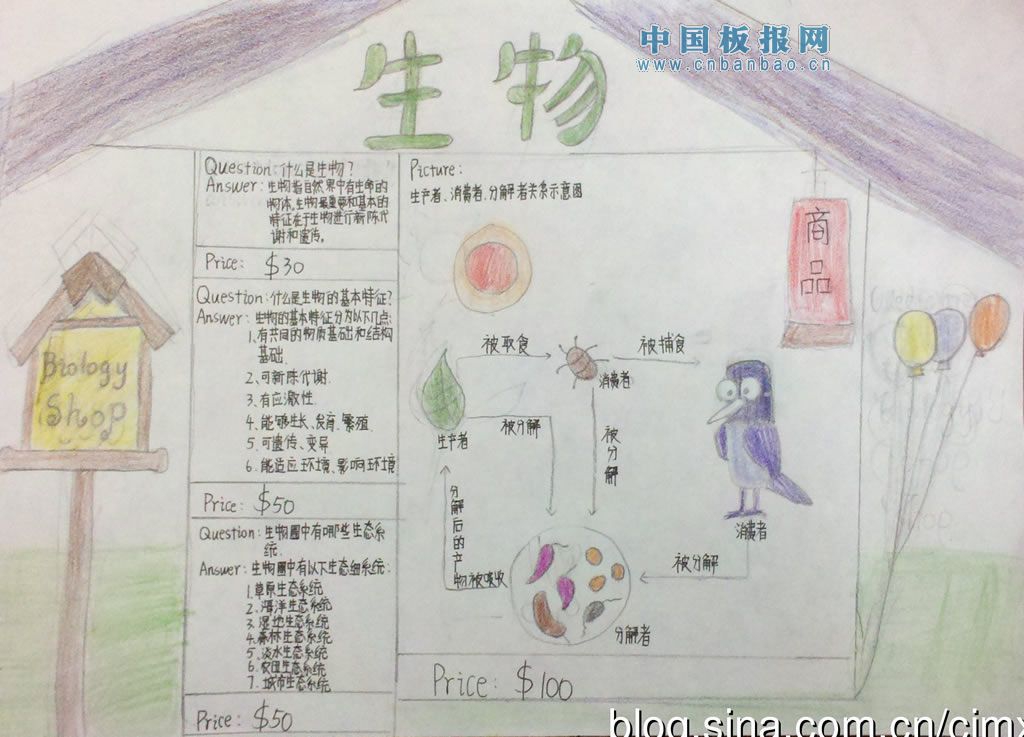 中国板报网
www.cnbanbao.cn
生物
Question:什么是生物?
Answer:生物指自然界中有生命的
物体,生物最重要和基本的
特征在于生物进行新陈代
谢和遗传。
Price: $30
Question:什么是生物的基本特征?
Answer:生物的基本特征分为以下几点:
1.有共同的物质基础和结构
基础.
2.可新陈代谢.
3.有应激性
4.能够生长、发育.繁殖
5.可遗传、变异
6.能适应环境、影响环境
Price: $50
Question:生物圈中有哪些生态系
统.
Answer:生物圈中有以下生态细系统:
1.草原生态系统
2.海洋生态系统
3.湿地生态系统
4.森林生态系统
5.淡水生态系统
6.农田生态系统
7.城市生态系统
Price: $50
Picture:
生产者、消费者.分解者关系示意图
被取食
被捕食
消费者
生产者
被分解
被分解
消费者
分解后的产物被吸收
被分解
分解者
Price: $100
商品
Biology
Shop
blog.sina.com.cn/cjmx